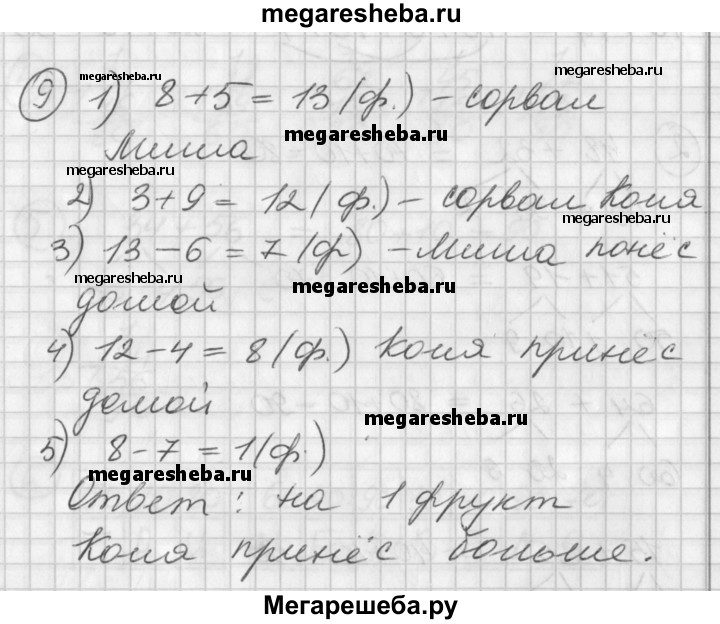 megaresheba.ru
megaresheba.ru megaresheba.ru
9 1) 8 + 5 = 13 (ф.) – сорвал
megaresheba.ru
Миша
megaresheba.ru
2) 3 + 9 = 12 ( ф.) – сорвал Коля
megaresheba.ru
3) 13 – 6 = 7 (ф) – Миша понёс
megaresheba.ru megaresheba.ru
домой
4) 12 – 4 = 8 (ф.) Коля принёс
домой
megaresheba.ru
5) 8 – 7 = 1 (ф.)
megaresheba.ru
Ответ : на 1 фрукт
Коля принёс больше.
Мегарешеба.ру